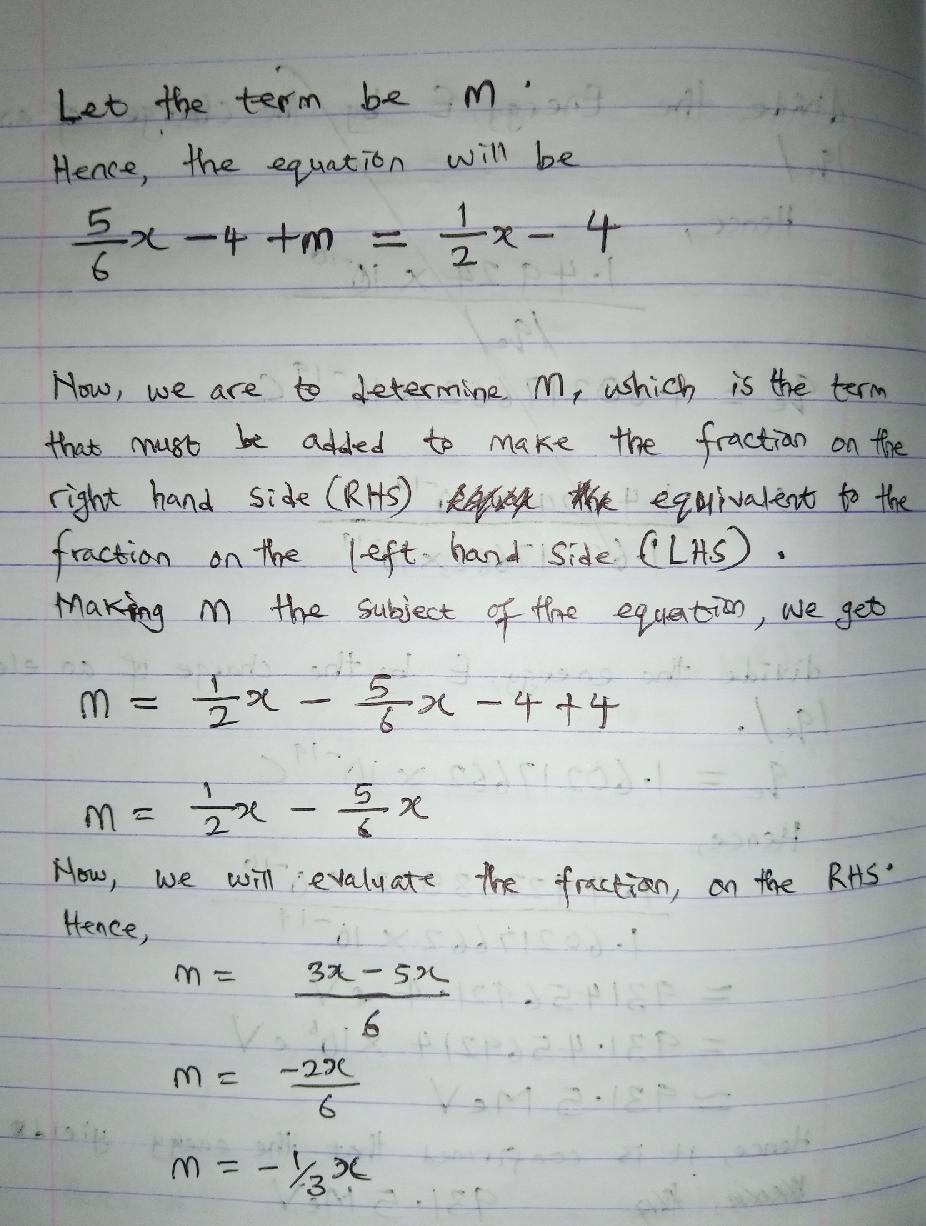 Let the term be m.
Hence, the equation will be
5/6 x - 4 + m = 1/2 x - 4
Now, we are to determine m, which is the term
that must be added to make the fraction on the
right hand side (RHS) the equivalent to the
fraction on the left hand side (LHS).
Making m the subject of the equation, we get
m = 1/2 x - 5/6 x - 4 + 4
m = 1/2 x - 5/6 x
Now, we will evaluate the fraction, on the RHS.
Hence,
m = 3x - 5x / 6
m = -2x / 6
m = -1/3 x